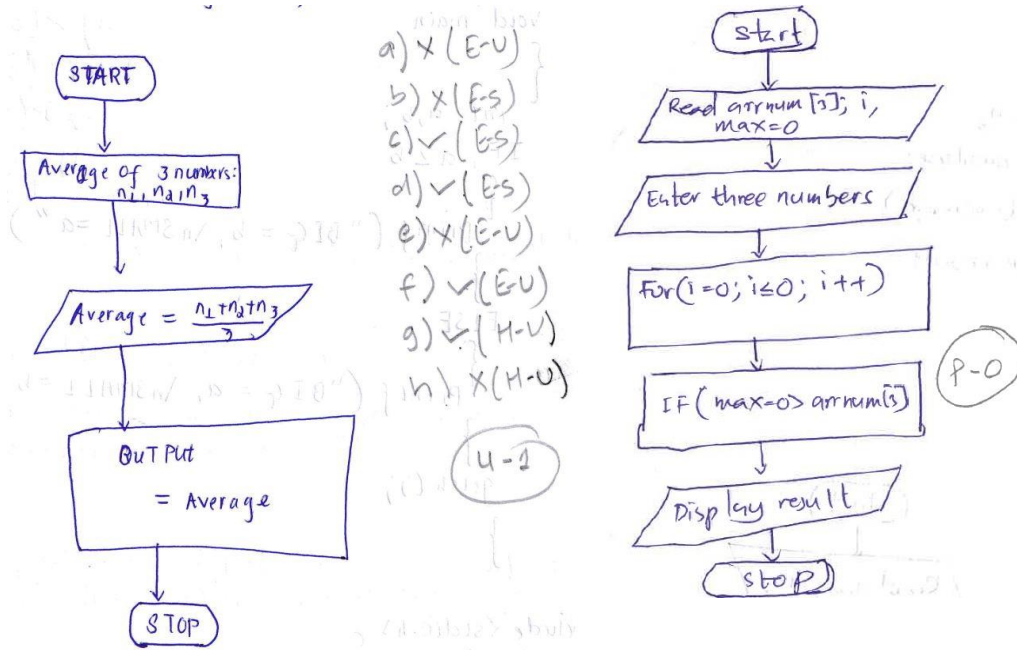 START
Average of 3 numbers:
n1, n2, n3
Average = n1+n2+n3
3
OUTPUT
= Average
STOP
void main
a) X (E-U)
b) X (E-S)
c) ✓ (E-S)
d) ✓ (E-S)
e) X (E-U)
f) ✓ (E-U)
g) ✓ (H-U)
h) X (H-U)
U-1
Start
Read arrnum [3]; i,
max=0
Enter three numbers
For(i=0; i≤0; i++)
IF (max=0> arrnum[3]
P-0
Display result
Stop